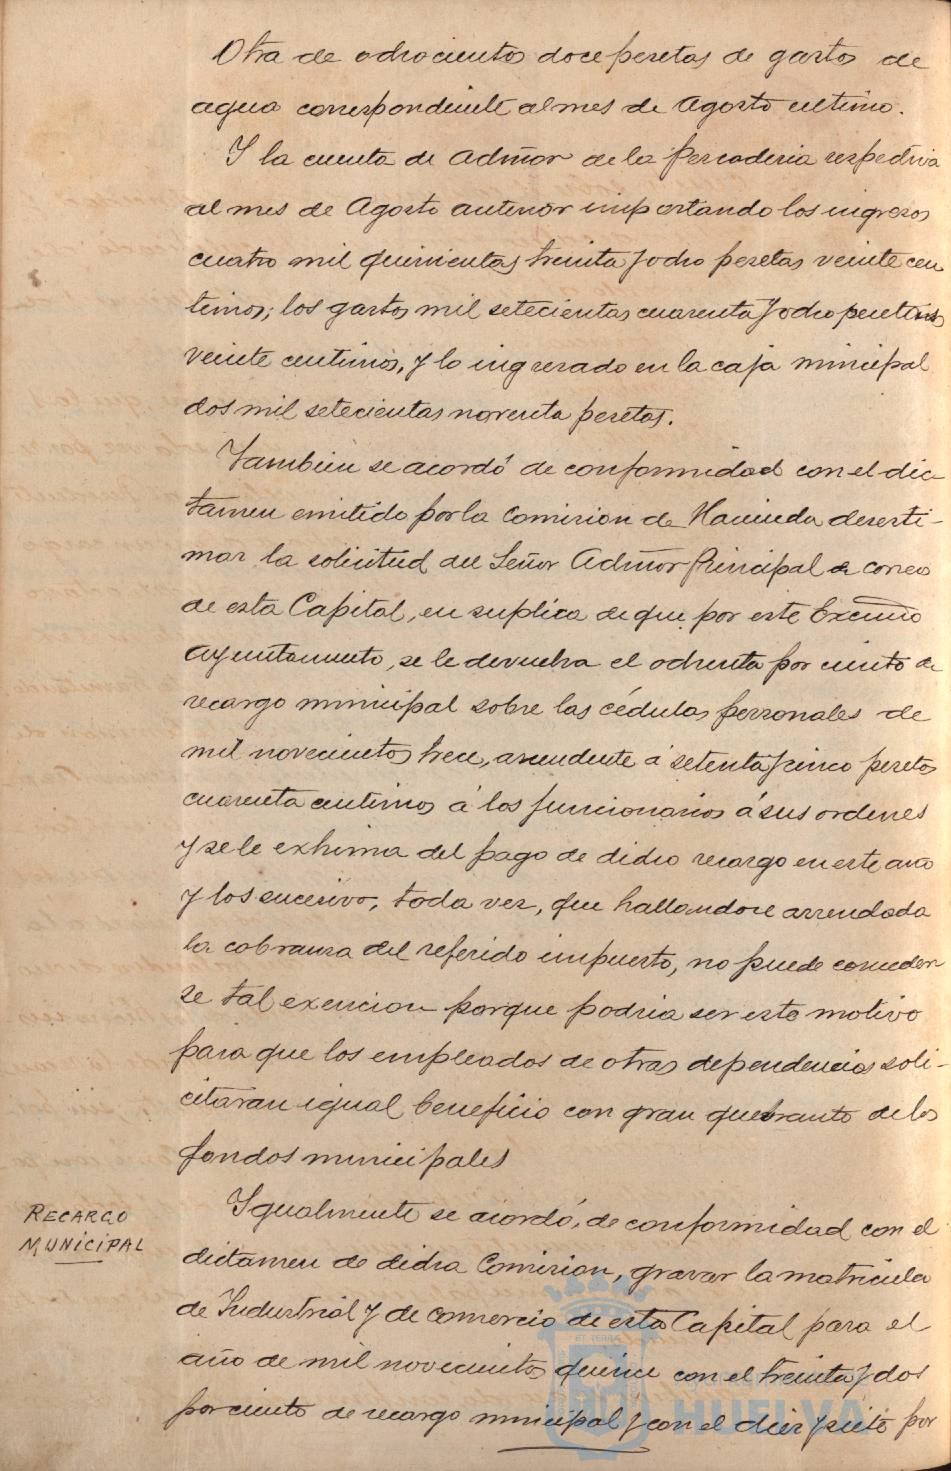 Otra de ochocientos doce pesetas de gastos de
agua correspondiente al mes de Agosto ultimo.
Y la cuenta de Admor de la Pescaderia respectiva
al mes de Agosto anterior importando los ingresos
cuatro mil quinientas treinta y ocho pesetas veinte cen
timos; los gastos mil setecientas cuarenta y ocho pesetas
veinte centimos, y lo ingresado en la caja municipal
dos mil setecientas noventa pesetas.
Tambien se acordó de conformidad con el dic-
tamen emitido por la Comision de Hacienda desesti-
mar la solicitud del Señor Admor Principal de correos
de esta Capital, en suplica de que por este Excmo
Ayuntamiento, se le devuelva el ochenta por ciento de
recargo municipal sobre las cédulas personales de
mil novecientos trece, ascendente á setenta y cinco pesetas
cuarenta centimos á los funcionarios á sus ordenes
y se le exhima del pago de dicho recargo en este año
y los sucesivo, toda vez, que hallandose arrendada
la cobranza del referido impuesto, no puede conceder
se tal exencion porque podria ser esto motivo
para que los empleados de otras dependencias soli-
citaran igual beneficio con gran quebranto de los
fondos municipales
RECARGO
MUNICIPAL
Ygualmente se acordó, de conformidad con el
dictamen de dicha Comision, gravar la matricula
de Industrial y de comercio de esta Capital para el
año de mil novecientos quince con el treinta y dos
por ciento de recargo municipal y con el diez y siete por
HUELVA